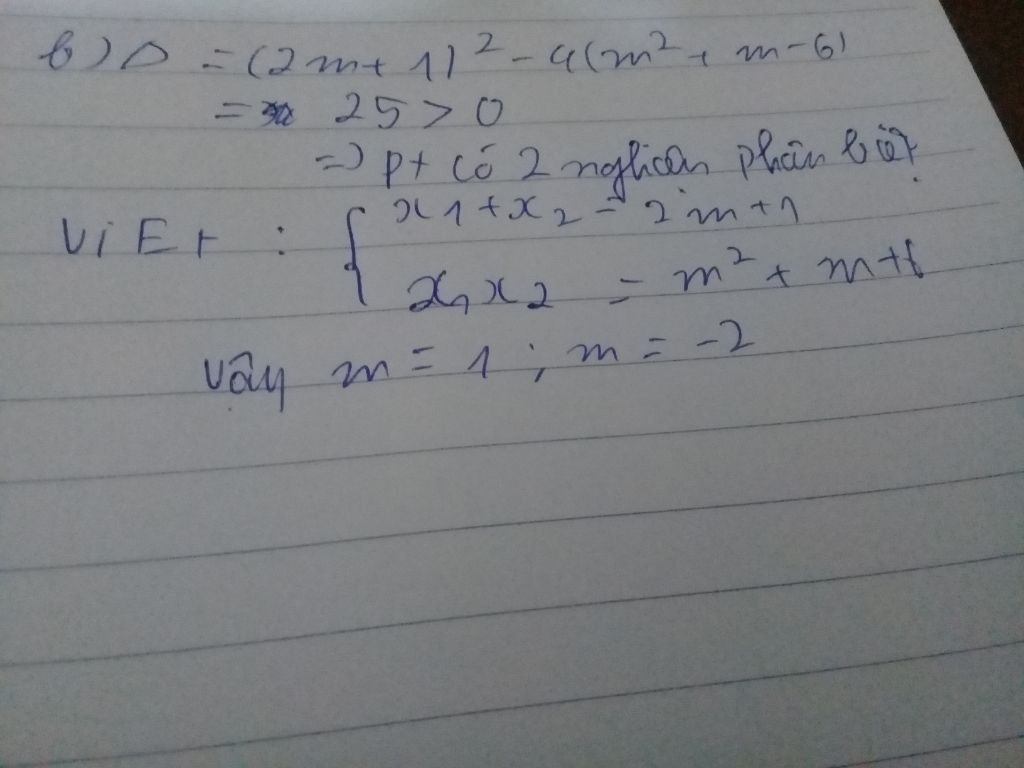 b) Δ = (2m+1)² - 4(m² + m-6)
= 25 > 0
=> pt có 2 nghiệm phân biệt
ViEt : { x1+x2 = 2m+1
x1x2 = m² + m+6
Vậy m = 1 ; m = -2